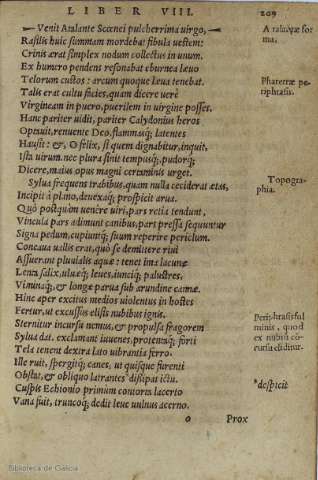 LIBER VIII.
209
Venit Atalante Scœnei pulcherrima virgo,
Rasilis huic summam mordebat fibula uestem:
Crinis erat simplex nodum collectus in unum.
Ex humero pendens resonabat eburnea leuo
Telorum custos: arcum quoque leua tenebat.
Talis erat cultu facies, quam dicere uerè
Virgineam in puero, puerilem in virgine posses.
Hanc pariter uidit, pariter Calydonius heros
Optauit, renuente Deo, flammasq; latentes
Hausit: &, O felix, si quem dignabitur, inquit,
Ista uirum. nec plura sinit tempusq;, pudorq;
Dicere, maius opus magni certaminis urget.
Sylua frequens trabibus, quam nulla ceciderat ætas,
Incipit à plano, deuexaq; prospicit arua.
Quò postquam uenêre uiri, pars retia tendunt,
Vincula pars adimunt canibus, pars pressa sequuntur
Signa pedum, cupiuntq; suum reperire periclum.
Concaua uallis erat, quò se demittere riui
Assuerant pluuialis aquæ: tenet ima lacunæ
Lenta salix, uluæq; leues, iunciq; palustres,
Viminaq;, & longæ parua sub arundine cannæ.
Hinc aper excitus medios uiolentus in hostes
Fertur, ut excussis elisi nubibus ignis.
Sternitur incursu nemus, & propulsa fragorem
Sylua dat. exclamant iuuenes, protentaq; forti
Tela tenent dextra lato uibrantia ferro.
Ille ruit, spargitq; canes, ut quisque furenti
Obstat, & obliquo latrantes dissipat ictu.
Cuspis Echionio primum contorta lacerto
Vana fuit, truncoq; dedit leue uulnus acerno.
o Prox
A rainæ for
ma.
Pharetræ pe
riphrasis.
Topogra-
phia.
Periphrasis ful
minis, quod
ex nubiũ cõ-
cursu eliditur.
*despicit
Biblioteca de Galicia